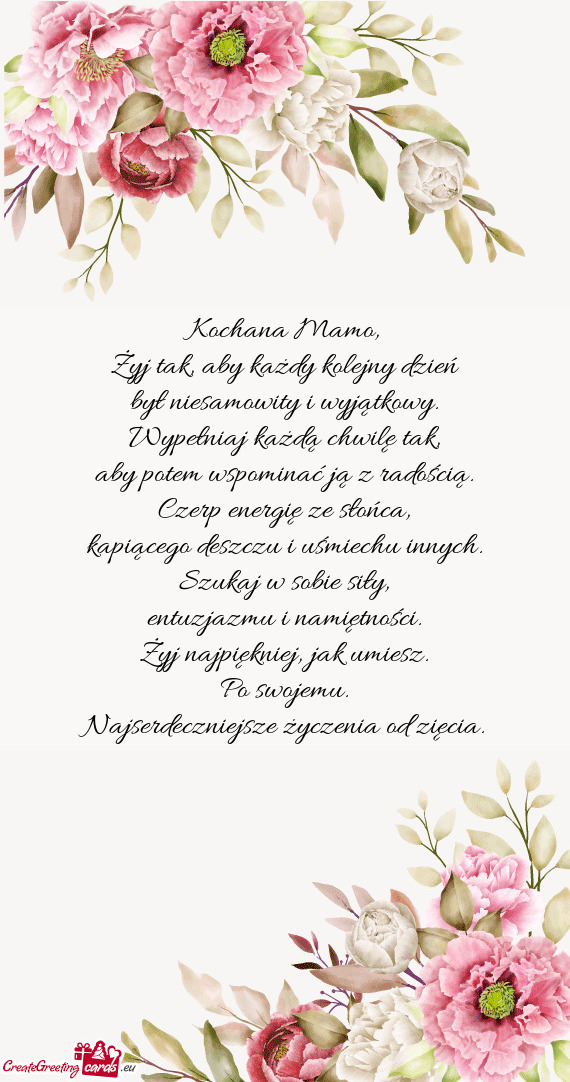 Kochana Mamo,
Żyj tak, aby każdy kolejny dzień
był niesamowity i wyjątkowy.
Wypełniaj każdą chwilę tak,
aby potem wspominać ją z radością.
Czerp energię ze słońca,
kapiącego deszczu i uśmiechu innych.
Szukaj w sobie siły,
entuzjazmu i namiętności.
Żyj najpiękniej, jak umiesz.
Po swojemu.
Najserdeczniejsze życzenia od zięcia.
CreateGreeting cards .eu